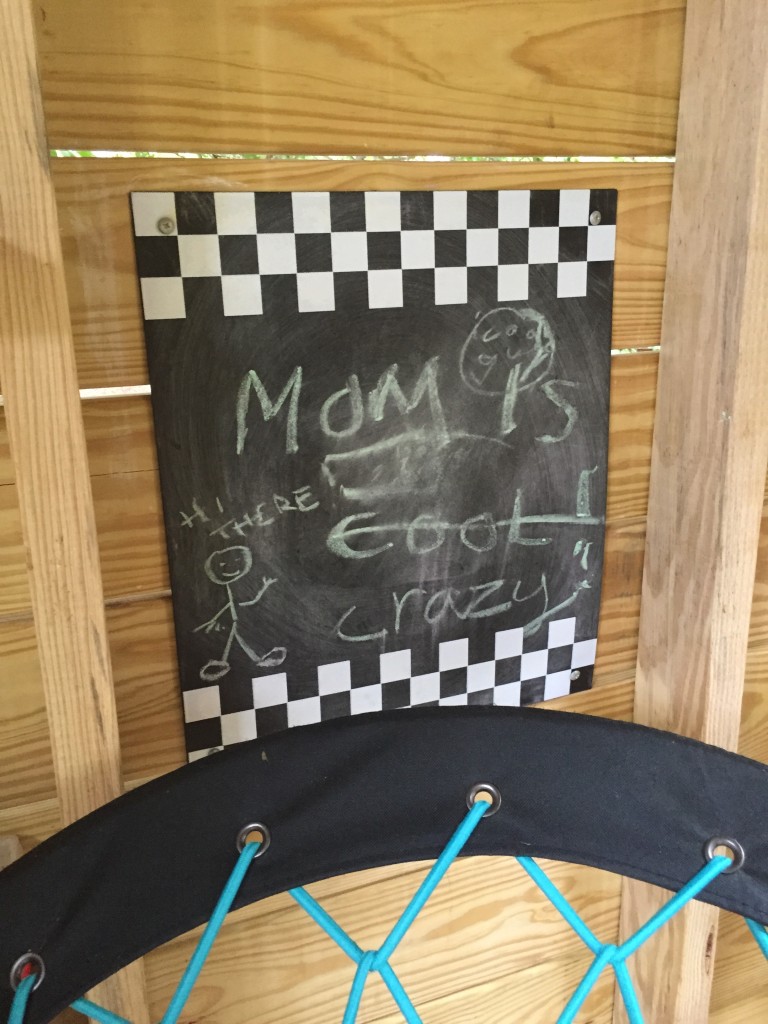 MOM IS
HI THERE
COOL!
crazy!